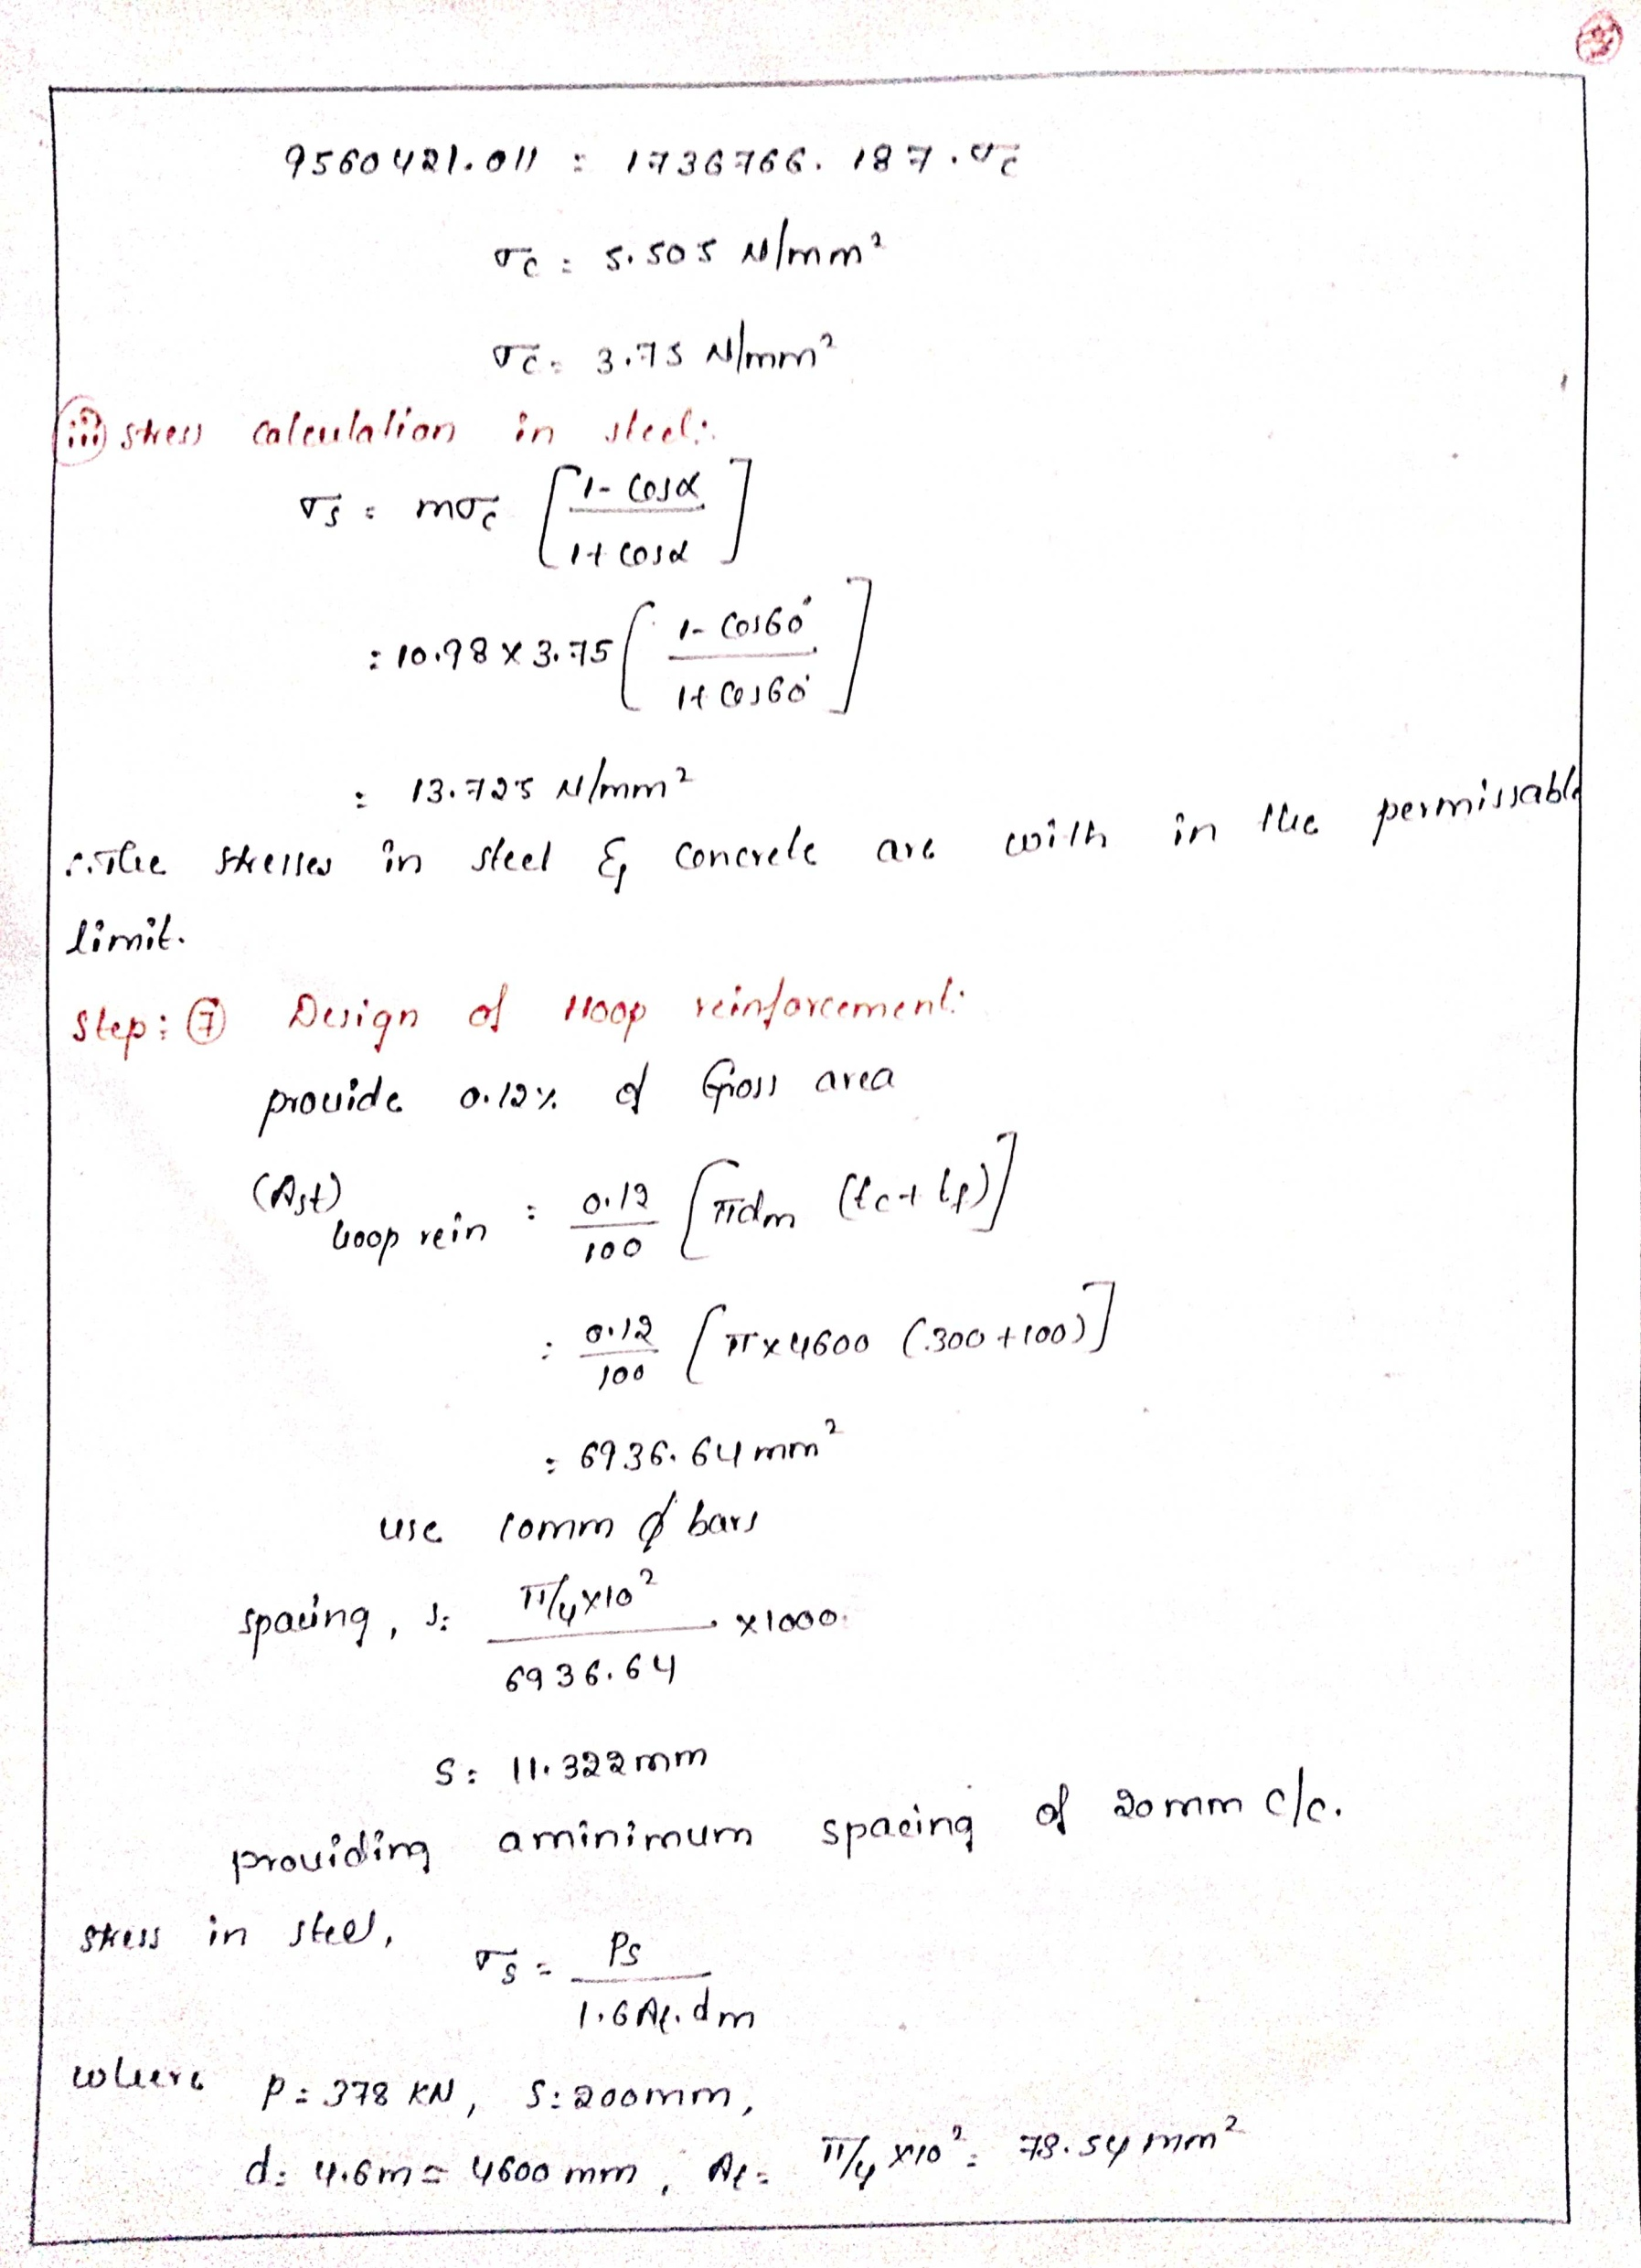 9560421.011 = 1736766.187.σc
σc = 5.505 N/mm²
σc = 3.75 N/mm²
(iii) stress calculation in steel:
σs = mσc [1-cosα / 1+cosα]
= 10.98 x 3.75 [1-cos60° / 1+cos60°]
= 13.725 N/mm²
∴ The stresses in steel & concrete are with in the permissable
limit.
Step: (7) Design of Hoop reinforcement:
provide 0.12% of Gross area
(Ast) hoop rein = 0.12/100 [πdm (tc + tf)]
= 0.12/100 [π x 4600 (300 + 100)]
= 6936.64 mm²
use 10mm ϕ bars
spacing, s = π/4 x 10² / 6936.64 x 1000
S = 11.322 mm
providing a minimum spacing of 20 mm c/c.
stress in steel, σs = Ps / 1.6 At.dm
where P = 378 KN, S = 200mm,
d = 4.6m = 4600 mm, At = π/4 x 10² = 78.54 mm²